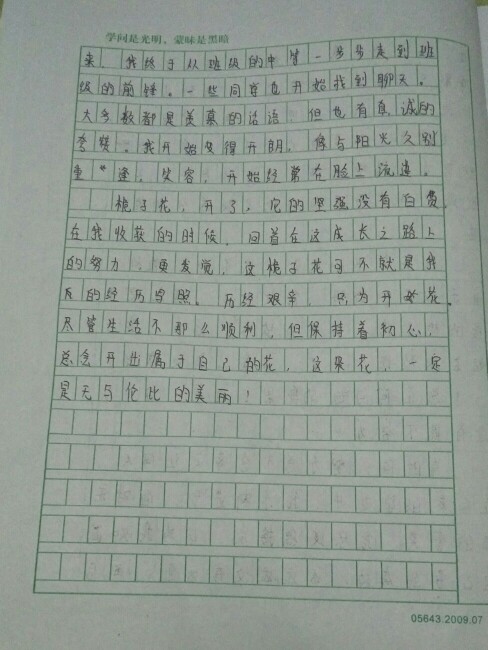 学问是光明,蒙昧是黑暗
来,我终于从班级的中等一步步走到班
级的前锋。一些同学也开始找到聊天。
大多数都是羡慕的话语,但也有真诚的
夸奖。我开始变得开朗,像与阳光久别
重逢。笑容,开始经常在脸上流连。
栀子花,开了,它的坚强没有白费
在我收获的时候,回首在这成长之路上
的努力,更发觉,这栀子花可不就是我
的经历写照。历经艰辛,只为开花。
尽管生活不那么顺利,但保持着初心,
总会开出属于自己的花,这朵花,一定
是无与伦比的美丽!
05643.2009.07